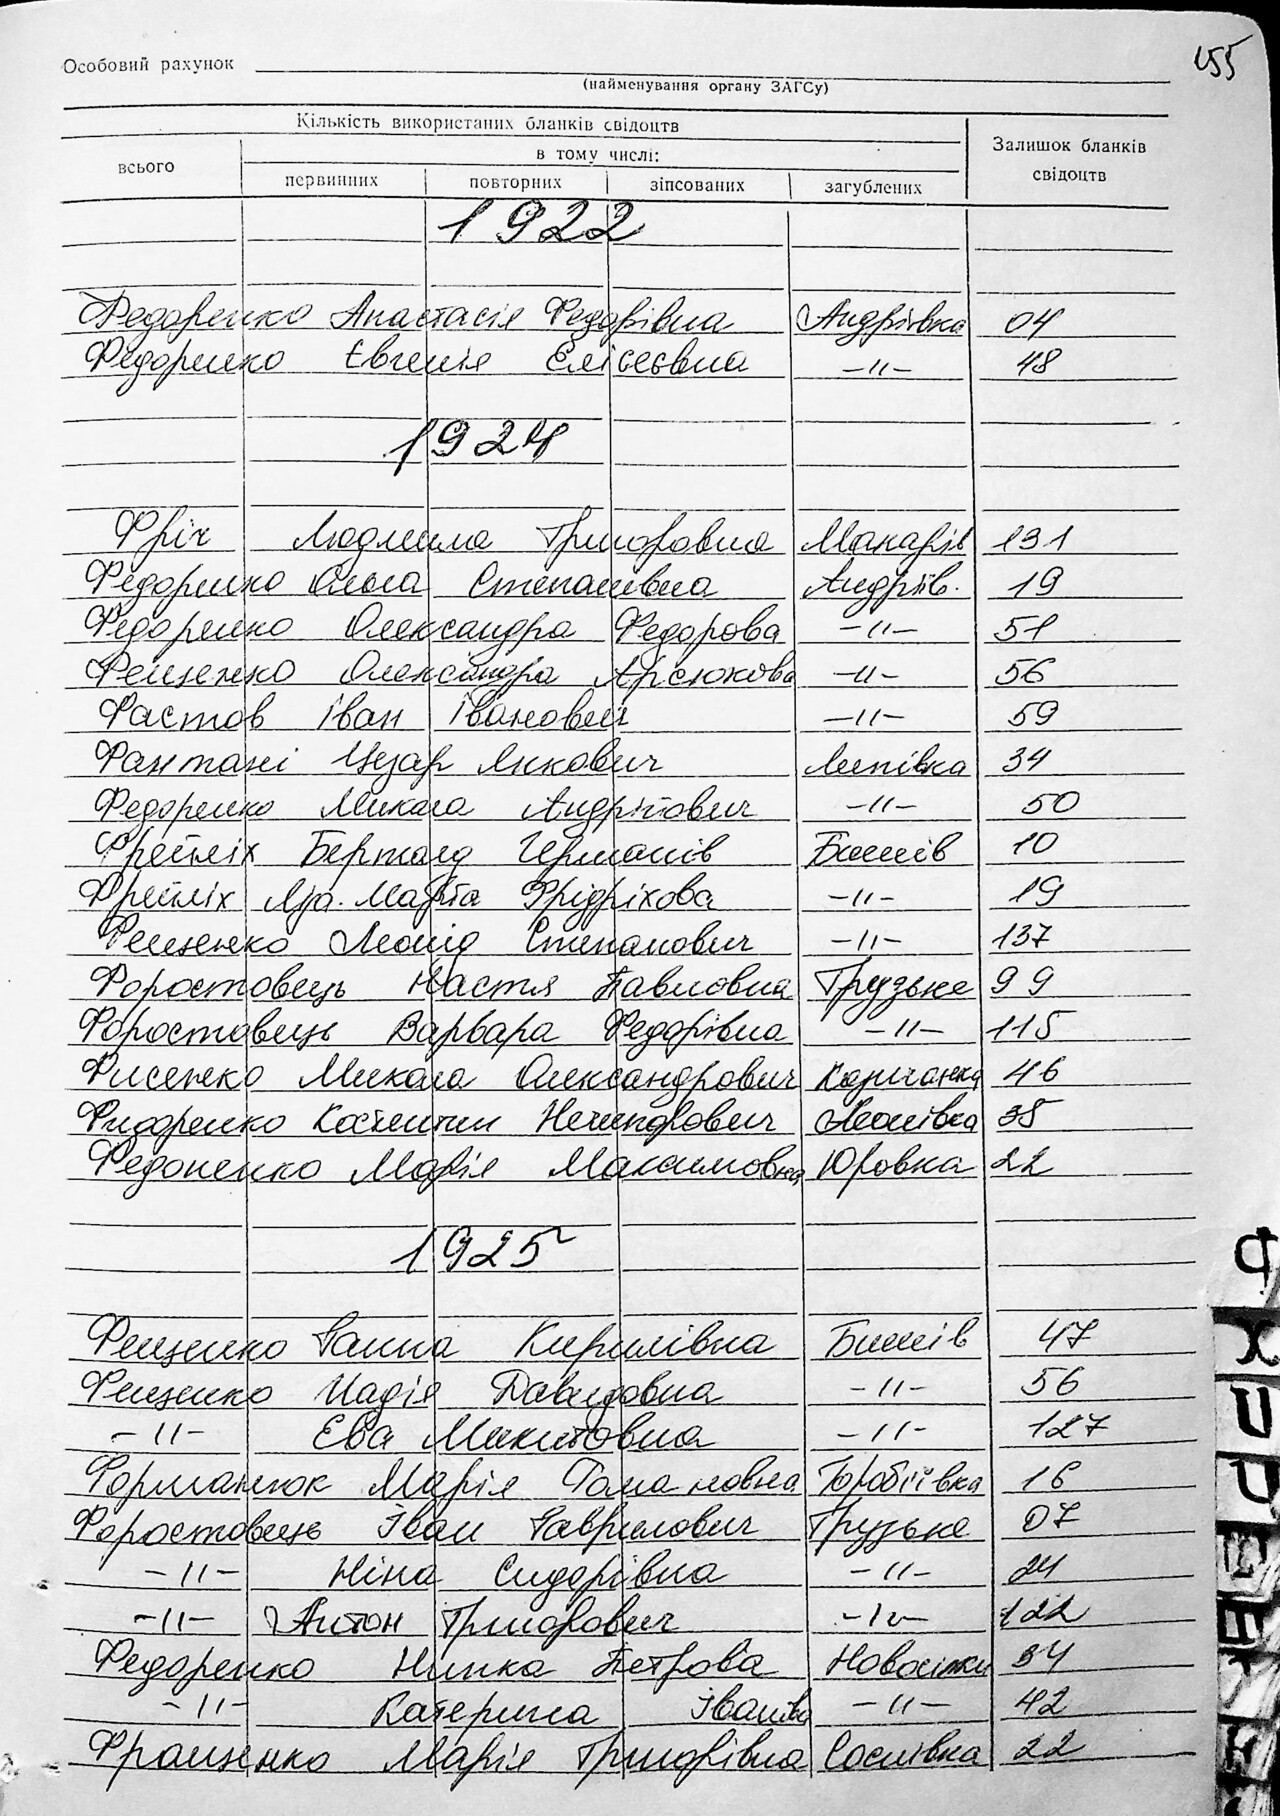 455
Особовий рахунок
(найменування органу ЗАГСу)
Кількість використаних бланків свідоцтв
Залишок бланків свідоцтв
всього
в тому числі:
первинних повторних зіпсованих загублених
1922
Федоренко Анастасія Федорівна Андріївка 04
Федоренко Євгенія Елісеєвна -"- 48
1924
Фріх Людмила Григоровна Макарів 131
Федоренко Ольга Степанівна Андріїв. 19
Федоренко Олександра Федорова -"- 51
Фещенко Олександра Арсюкова -"- 56
Фастов Іван Іванович -"- 59
Фантані Цезар Янкович Липівка 34
Федоренко Микола Андрійович -"- 50
Фрейліх Бертольд Германів Бишів 10
Фрейліх Марта Фрідріхова -"- 19
Фещенко Леонід Степанович -"- 137
Форостовець Настя Павловна Грузьке 99
Форостовець Варвара Федорівна -"- 115
Фисенко Микола Олександрович 46
Фидоренко Костянтин Нечипорович Леонівка 35
Федоненко Марія Максимовна Юровка 22
1925
Фещенко Ганна Кирилівна Бишів 47
Фещенко Надія Давидовна -"- 56
-"- Ева Микитовна -"- 127
Форманюк Марія Романовна Горобіївка 16
Форостовець Іван Гаврилович Грузьке 07
-"- Ніна Сидорівна -"- 24
-"- Антон Григорович -"- 122
Федоренко Нинка Петрова Новосілки 34
-"- Катерина Іванівна -"- 42
Фрощенко Марія Григорівна Соснівка 22
Ф
Х